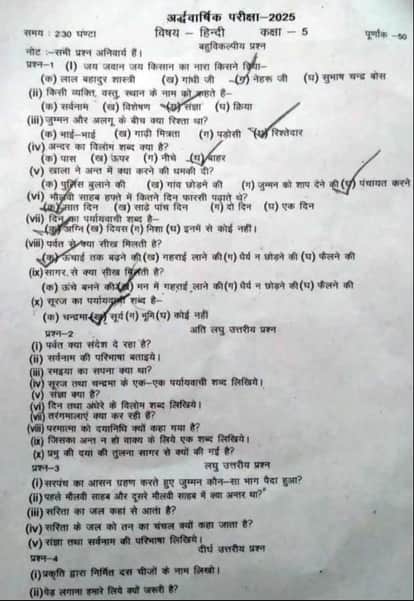 अर्द्धवार्षिक परीक्षा–2025
समय : 2:30 घण्टा विषय – हिन्दी कक्षा – 5 पूर्णांक –50
नोट :–सभी प्रश्न अनिवार्य हैं। बहुविकल्पीय प्रश्न
प्रश्न–1 (i) जय जवान जय किसान का नारा किसने दिया–
(क) लाल बहादुर शास्त्री (ख) गांधी जी (ग) नेहरू जी (घ) सुभाष चन्द्र बोस
(ii) किसी व्यक्ति, वस्तु, स्थान के नाम को कहते है–
(क) सर्वनाम (ख) विशेषण (ग) संज्ञा (घ) क्रिया
(iii) जुम्मन और अलगू के बीच क्या रिश्ता था?
(क) भाई–भाई (ख) गाढ़ी मित्रता (ग) पड़ोसी (घ) रिश्तेदार
(iv) अन्दर का विलोम शब्द क्या है?
(क) पास (ख) ऊपर (ग) नीचे (घ) बाहर
(v) खाला ने अन्त में क्या करने की धमकी दी?
(क) पुलिस बुलाने की (ख) गांव छोड़ने की (ग) जुम्मन को शाप देने की (घ) पंचायत करने
(vi) मौलवी साहब हफ्ते में कितने दिन फारसी पढ़ाते थे?
(क) सात दिन (ख) साढ़े पांच दिन (ग) दो दिन (घ) एक दिन
(vii) दिन का पर्यायवाची शब्द है–
(क) अग्नि (ख) दिवस (ग) निशा (घ) इनमें से कोई नहीं।
(viii) पर्वत से क्या सीख मिलती है?
(क) ऊंचाई तक बढ़ने की (ख) गहराई लाने की (ग) धैर्य न छोड़ने की (घ) फैलने की
(ix) सागर से क्या सीख मिलती है?
(क) ऊंचे बनने की (ख) मन में गहराई लाने की (ग) धैर्य न छोड़ने की (घ) फैलने की
(x) सूरज का पर्यायवाची शब्द है–
(क) चन्द्रमा (ख) सूर्य (ग) भूमि (घ) कोई नहीं
प्रश्न–2 अति लघु उत्तरीय प्रश्न
(i) पर्वत क्या संदेश दे रहा है?
(ii) सर्वनाम की परिभाषा बताइये।
(iii) रमइया का सपना क्या था?
(iv) सूरज तथा चन्द्रमा के एक–एक पर्यायवाची शब्द लिखिये।
(v) संज्ञा क्या है?
(vi) दिन तथा अंधेरे के विलोम शब्द लिखिये।
(vii) तरंगमालाएं क्या कर रही हैं?
(viii) परमात्मा को दयानिधि क्यों कहा गया है?
(ix) जिसका अन्त न हो वाक्य के लिये एक शब्द लिखिये।
(x) प्रभु की दया की तुलना सागर से क्यों की गई है?
प्रश्न–3 लघु उत्तरीय प्रश्न
(i) सरपंच का आसन ग्रहण करते हुए जुम्मन कौन–सा भाग पैदा हुआ?
(ii) पहले मौलवी साहब और दूसरे मौलवी साहब में क्या अन्तर था?
(iii) सरिता का जल कहां से आता है?
(iv) सरिता के जल को तन का चंचल क्यों कहा जाता है?
(v) संज्ञा तथा सर्वनाम की परिभाषा लिखिये।
प्रश्न–4 दीर्घ उत्तरीय प्रश्न
(i) प्रकृति द्वारा निर्मित दस चीजों के नाम लिखो।
(ii) पेड़ लगाना हमारे लिये क्यों जरूरी है?